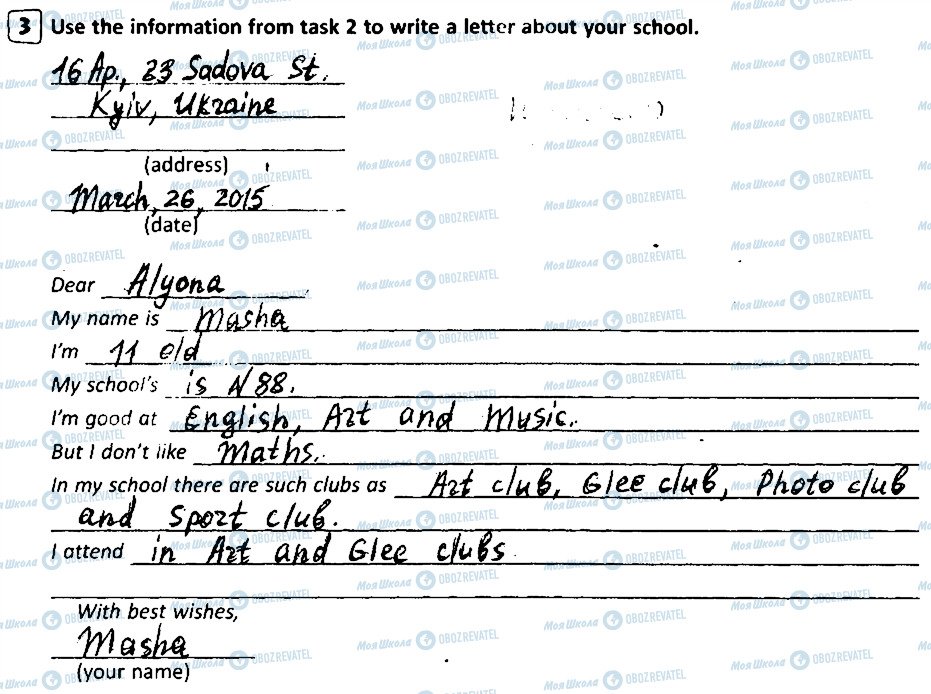 3 Use the information from task 2 to write a letter about your school.
16 Ap., 23 Sadova St.
Kyiv, Ukraine
(address)
March, 26, 2015
(date)
Dear Alyona
My name is Masha
I'm 11 old
My school's is N 88.
I'm good at English, Art and Music.
But I don't like Maths.
In my school there are such clubs as Art club, Glee club, Photo club
and Sport club.
I attend in Art and Glee clubs
With best wishes,
Masha
(your name)
Моя Школа OBOZREVATEL